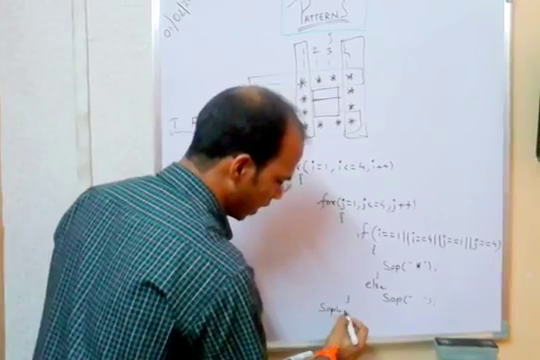 01/02/
PATTERNS
j
1 2 3 4
* * * *
* *
* *
* * * *
(i=1, i<=4, i++)
{
for(j=1, j<=4, j++)
{
if(i==1||i==4||j==1||j==4)
{
Sop("*");
}
else
Sop(" ");
}
Sopl